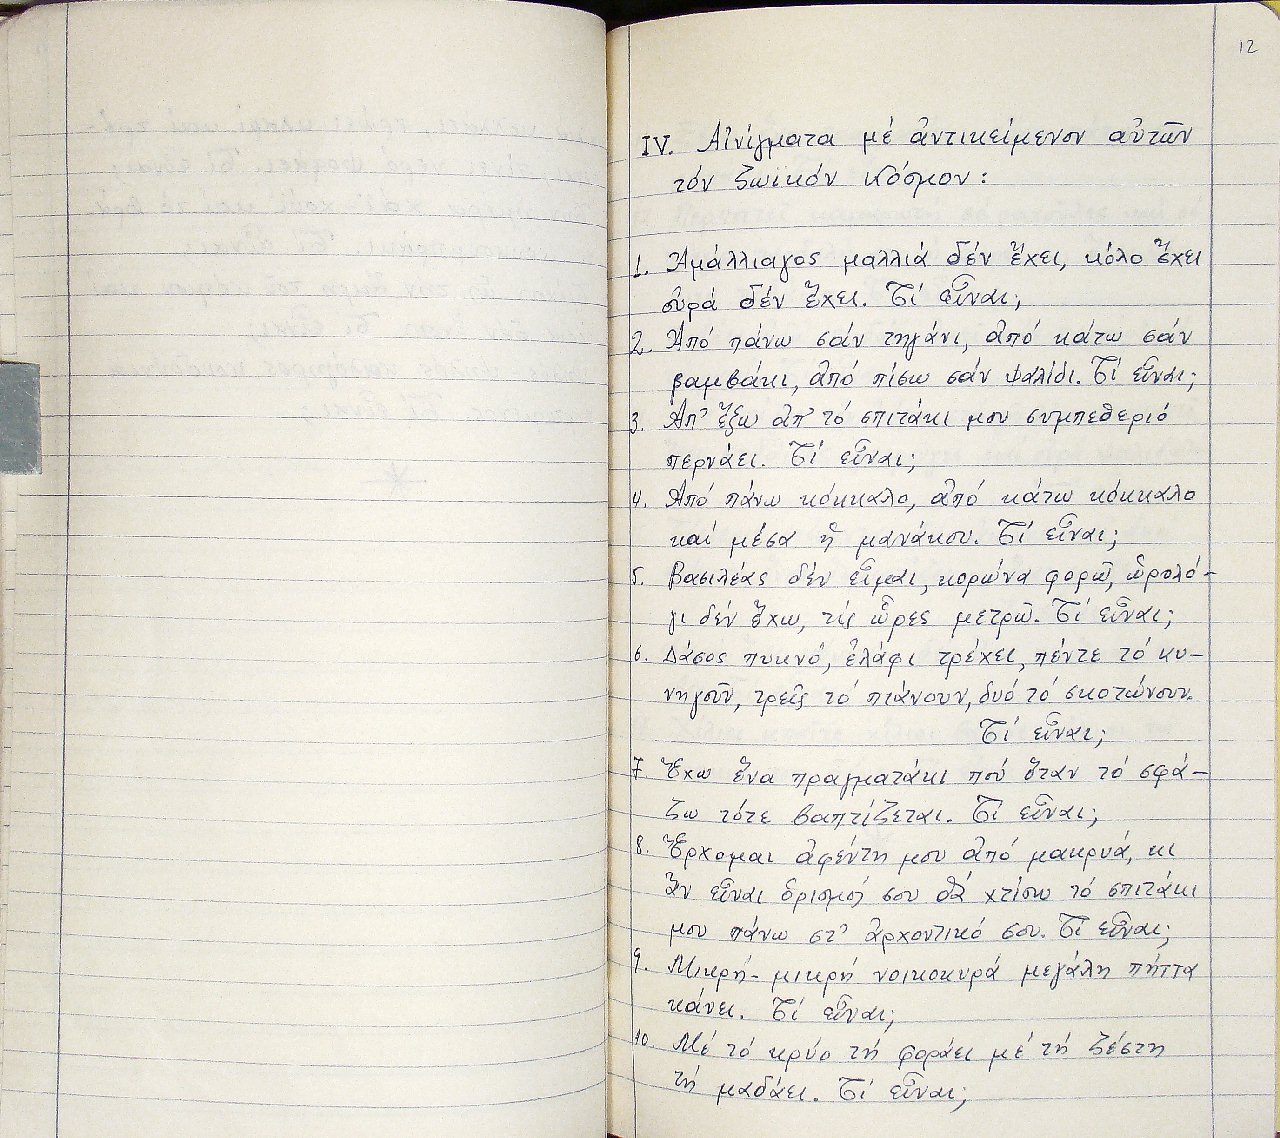 12
IV. Αἰνίγματα μέ ἀντικείμενον αὐτῶν
τόν ζωικόν κόσμον:
1. Ἀμάλλιαγος μαλλιά δέν ἔχει, κόλο ἔχει
οὐρά δέν ἔχει. Τί εἶναι;
2. Ἀπό πάνω σάν τηγάνι, ἀπό κάτω σάν
βαμβάκι, ἀπό πίσω σάν ψαλίδι. Τί εἶναι;
3. Ἀπ' ἔξω ἀπ' τό σπιτάκι μου συμπεθεριό
περνάει. Τί εἶναι;
4. Ἀπό πάνω κόκκαλο, ἀπό κάτω κόκκαλο
καί μέσα ἡ μανάκου. Τί εἶναι;
5. Βασιλέας δέν εἶμαι, κορώνα φορῶ, ὡρολό-
γι δέν ἔχω, τίς ὧρες μετρῶ. Τί εἶναι;
6. Δάσος πυκνό, ἐλάφι τρέχει, πέντε τό κυ-
νηγοῦν, τρεῖς τό πιάνουν, δυό τό σκοτώνουν.
Τί εἶναι;
7 Ἔχω ἕνα πραγματάκι πού ὅταν τό σφά-
ζω τότε βαπτίζεται. Τί εἶναι;
8. Ἔρχομαι ἀφέντη μου ἀπό μακρυά, κι
ἄν εἶναι ὁρισμός σου θά χτίσω τό σπιτάκι
μου πάνω στ' ἀρχοντικό σου. Τί εἶναι;
9. Μικρή-μικρή νοικοκυρά μεγάλη πήττα
κάνει. Τί εἶναι;
10 Μέ τό κρύο τή φοράει μέ τή ζέστη
τή μαδάει. Τί εἶναι;